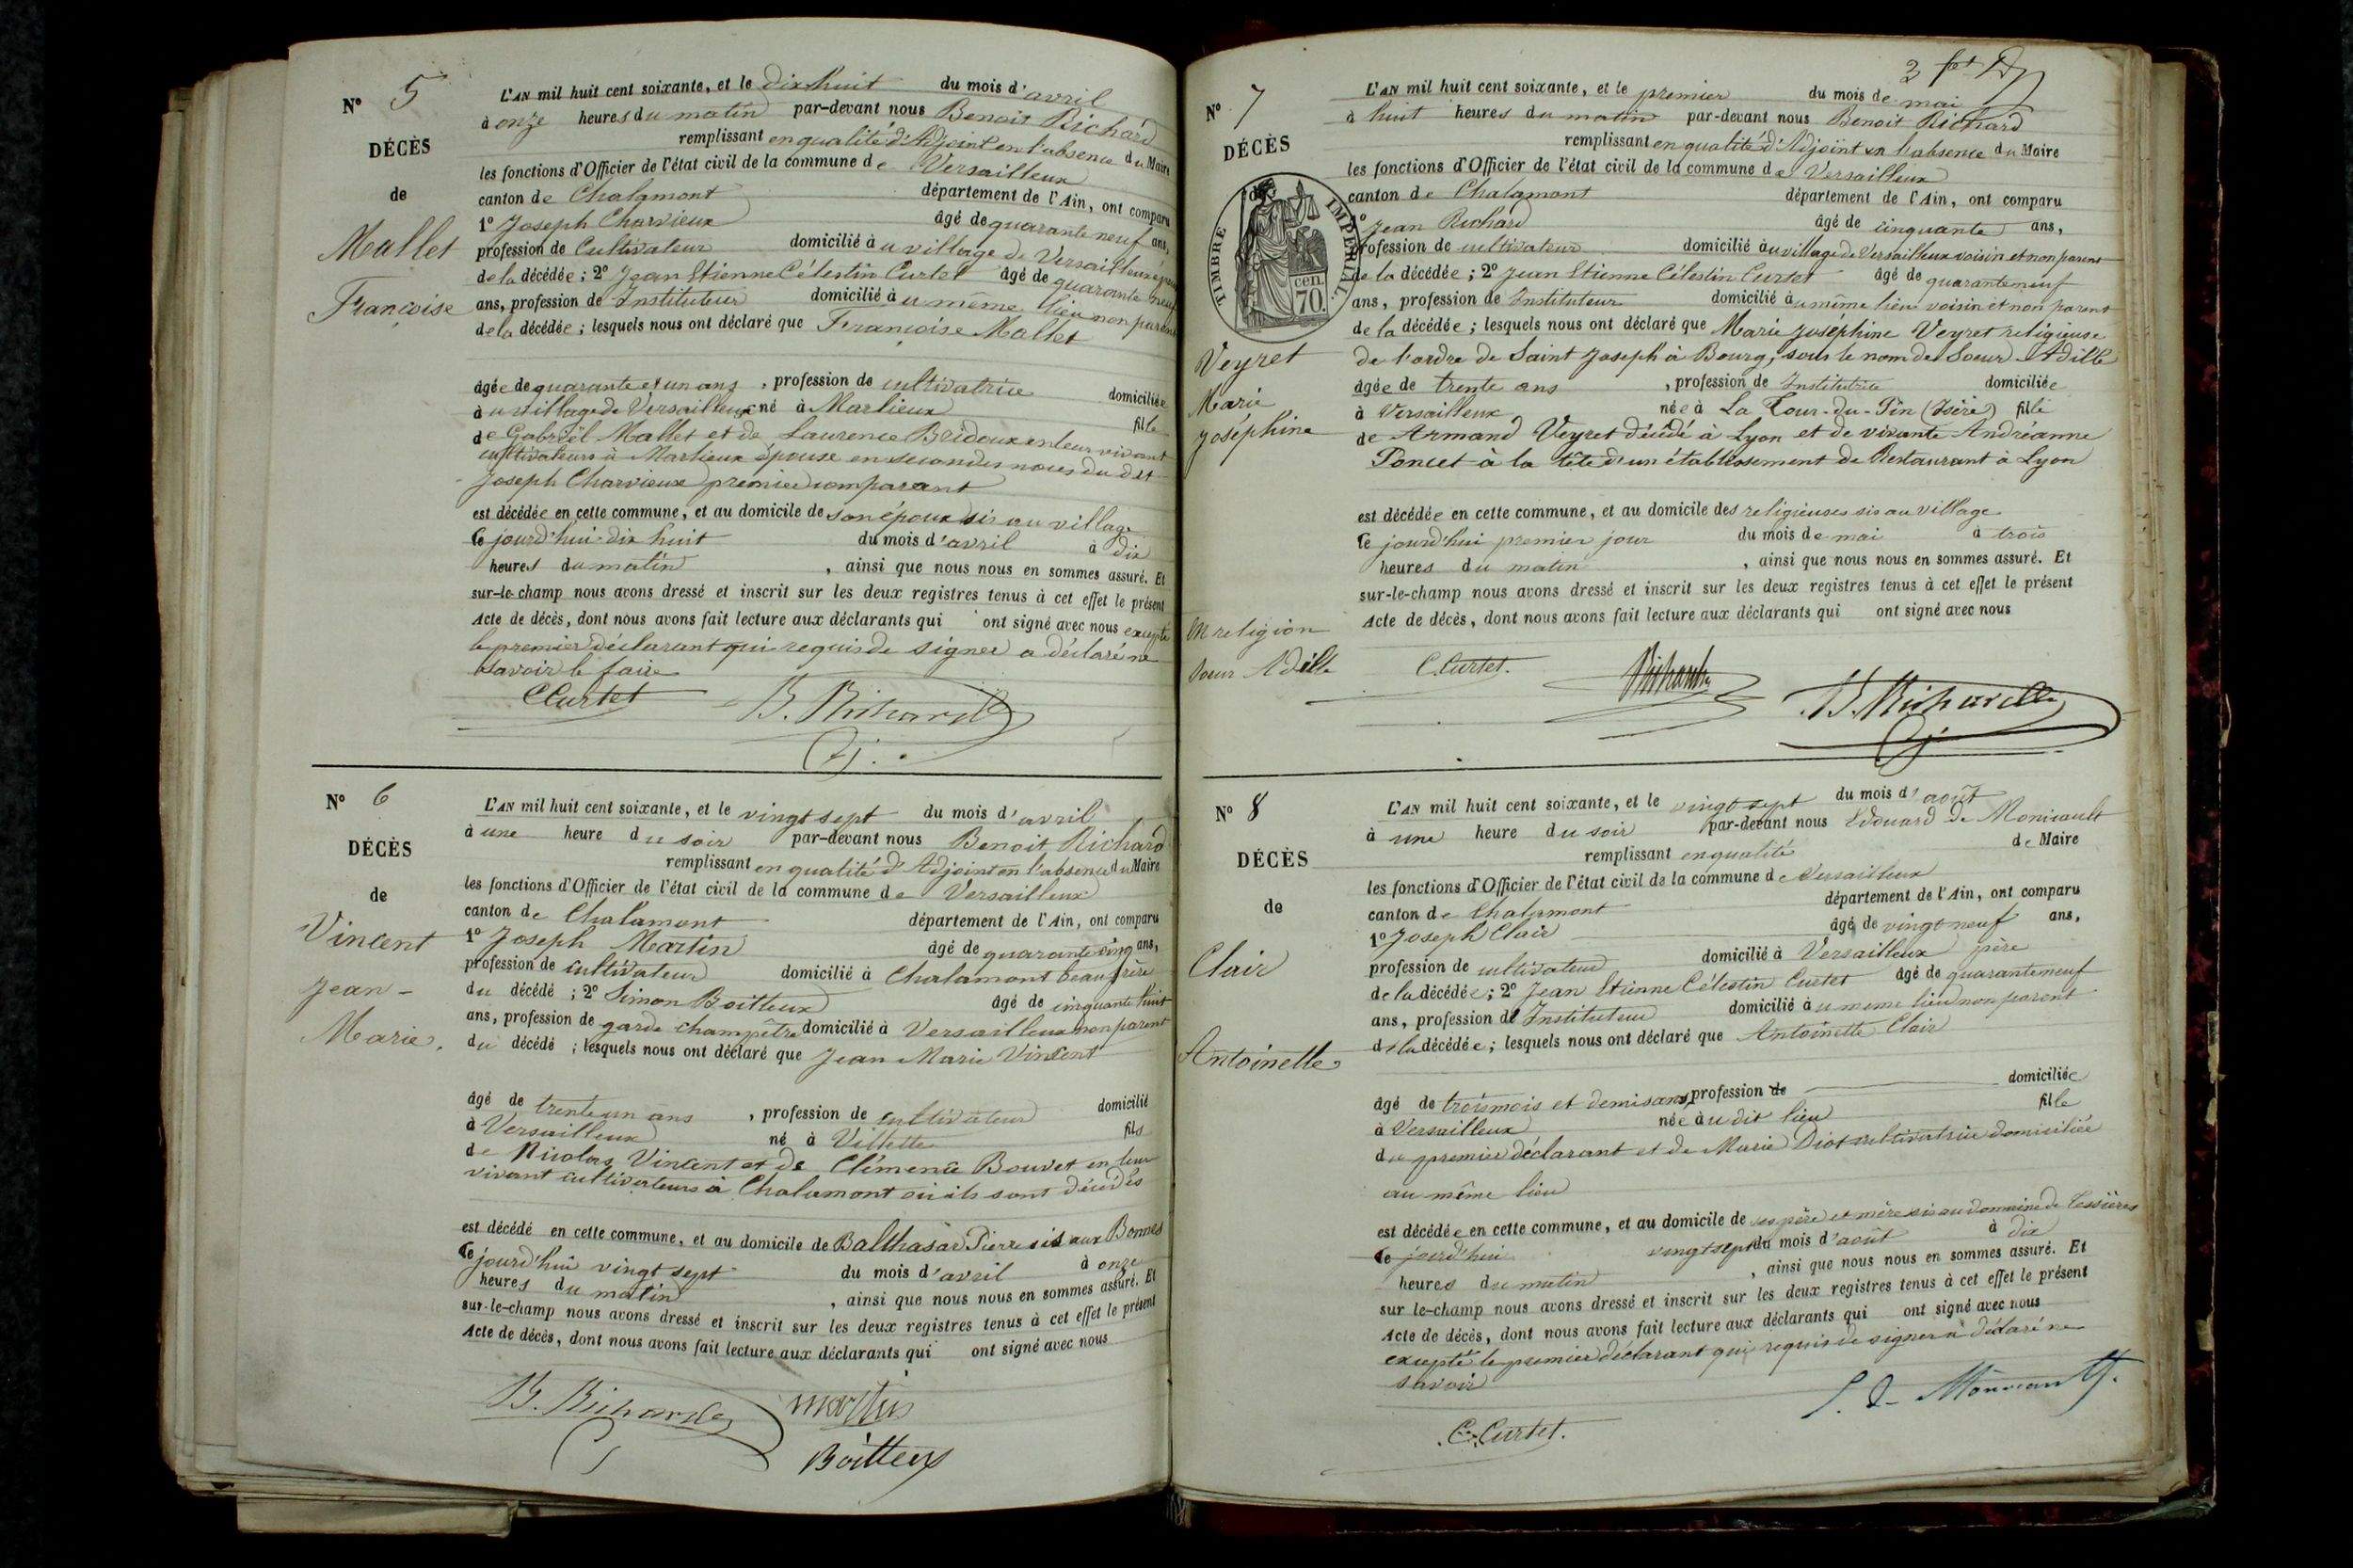 N° 5
DÉCÈS
de
Mallet
Françoise
L'AN mil huit cent soixante, et le dix huit du mois d'avril
à onze heures du matin par-devant nous Benoit Richard
remplissant en qualité d'Adjoint en l'absence du Maire
les fonctions d'Officier de l'état civil de la commune de Versailleux
canton de Chalamont département de l'Ain, ont comparu
1° Joseph Charvieux âgé de quarante neuf ans,
profession de Cultivateur domicilié au village de Versailleux époux
de la décédée ; 2° Jean Etienne Célestin Curtet âgé de quarante neuf
ans, profession de Instituteur domicilié au même lieu non parent
de la décédée ; lesquels nous ont déclaré que Françoise Mallet
âgée de quarante et un ans, profession de cultivatrice domiciliée
à u village de Versailleux né à Marlieux fille
de Gabriël Mallet et de Laurence Bridoux en leur vivant
cultivateurs à Marlieux épouse en secondes noces du dit
Joseph Charvieux premier comparant
est décédée en cette commune, et au domicile de son époux sis au village
Ce jourd'hui dix huit du mois d'avril à dix
heures du matin , ainsi que nous nous en sommes assuré. Et
sur-le-champ nous avons dressé et inscrit sur les deux registres tenus à cet effet le présent
Acte de décès, dont nous avons fait lecture aux déclarants qui ont signé avec nous excepté
le premier déclarant qui requis de signer a déclaré ne
savoir le faire
C Curtet B. Richard
Aj.
N° 6
DÉCÈS
de
Vincent
Jean-
Marie.
L'AN mil huit cent soixante, et le vingt sept du mois d'avril
à une heure du soir par-devant nous Benoit Richard
remplissant en qualité d'Adjoint en l'absence du Maire
les fonctions d'Officier de l'état civil de la commune de Versailleux
canton de Chalamont département de l'Ain, ont comparu
1° Joseph Martin âgé de quarante cinq ans,
profession de cultivateur domicilié à Chalamont beau frère
du décédé ; 2° Simon Boitteux âgé de cinquante huit
ans, profession de garde champêtre domicilié à Versailleux non parent
du décédé ; lesquels nous ont déclaré que Jean Marie Vincent
âgé de trente un ans , profession de cultivateur domicilié
à Versailleux né à Villette fils
de Nicolas Vincent et de Clémence Bouvet en leur
vivant cultivateurs à Chalamont où ils sont décédés
est décédé en cette commune, et au domicile de Balthasar Pierre sis aux Bonnes
Ce jourd'hui vingt sept du mois d'avril à onze
heures du matin , ainsi que nous nous en sommes assuré. Et
sur-le-champ nous avons dressé et inscrit sur les deux registres tenus à cet effet le présent
Acte de décès, dont nous avons fait lecture aux déclarants qui ont signé avec nous
B. Richard martin
Boitteux
N° 7
DÉCÈS
de
TIMBRE IMPÉRIAL
70 cen.
Veyret
Marie
Joséphine
En religion
Soeur Adille
L'AN mil huit cent soixante, et le premier du mois de mai
à huit heures du matin par-devant nous Benoit Richard
remplissant en qualité d'Adjoint en l'absence du Maire
les fonctions d'Officier de l'état civil de la commune de Versailleux
canton de Chalamont département de l'Ain, ont comparu
1° Jean Richard âgé de cinquante ans,
profession de cultivateur domicilié au village de Versailleux voisin et non parent
de la décédée ; 2° Jean Etienne Célestin Curtet âgé de quarante neuf
ans, profession de Instituteur domicilié au même lieu voisin et non parent
de la décédée ; lesquels nous ont déclaré que Marie Joséphine Veyret religieuse
de l'ordre de Saint Joseph à Bourg, sous le nom de Soeur Adille
âgée de trente ans , profession de Institutrice domiciliée
à Versailleux née à La Tour-du-Pin (Isère) fille
de Armand Veyret décédé à Lyon et de vivante Andréanne
Poncet à la tête d'un établissement de Restaurant à Lyon
est décédée en cette commune, et au domicile des religieuses sis au village
Ce jourd'hui premier jour du mois de mai à trois
heures du matin , ainsi que nous nous en sommes assuré. Et
sur-le-champ nous avons dressé et inscrit sur les deux registres tenus à cet effet le présent
Acte de décès, dont nous avons fait lecture aux déclarants qui ont signé avec nous
C. Curtet. Richard B. Richard
Aj.
N° 8
DÉCÈS
de
Clair
Antoinette
L'AN mil huit cent soixante, et le vingt sept du mois d'août
à une heure du soir par-devant nous Edouard de Monicault
remplissant en qualité de Maire
les fonctions d'Officier de l'état civil de la commune de Versailleux
canton de Chalamont département de l'Ain, ont comparu
1° Joseph Clair âgé de vingt neuf ans,
profession de cultivateur domicilié à Versailleux père
de la décédée ; 2° Jean Etienne Célestin Curtet âgé de quarante neuf
ans, profession de Instituteur domicilié au meme lieu non parent
de la décédée ; lesquels nous ont déclaré que Antoinette Clair
âgé de trois mois et demi ans, profession de domiciliée
à Versailleux née au dit lieu fille
du premier déclarant et de Marie Diot cultivatrice domiciliée
au même lieu
est décédée en cette commune, et au domicile de ses père et mère sis au domaine de Tessières
Ce jourd'hui vingt sept du mois d'août à dix
heures du matin , ainsi que nous nous en sommes assuré. Et
sur le-champ nous avons dressé et inscrit sur les deux registres tenus à cet effet le présent
Acte de décès, dont nous avons fait lecture aux déclarants qui ont signé avec nous
excepté le premier déclarant qui requis de signer a déclaré ne
savoir
C. Curtet.